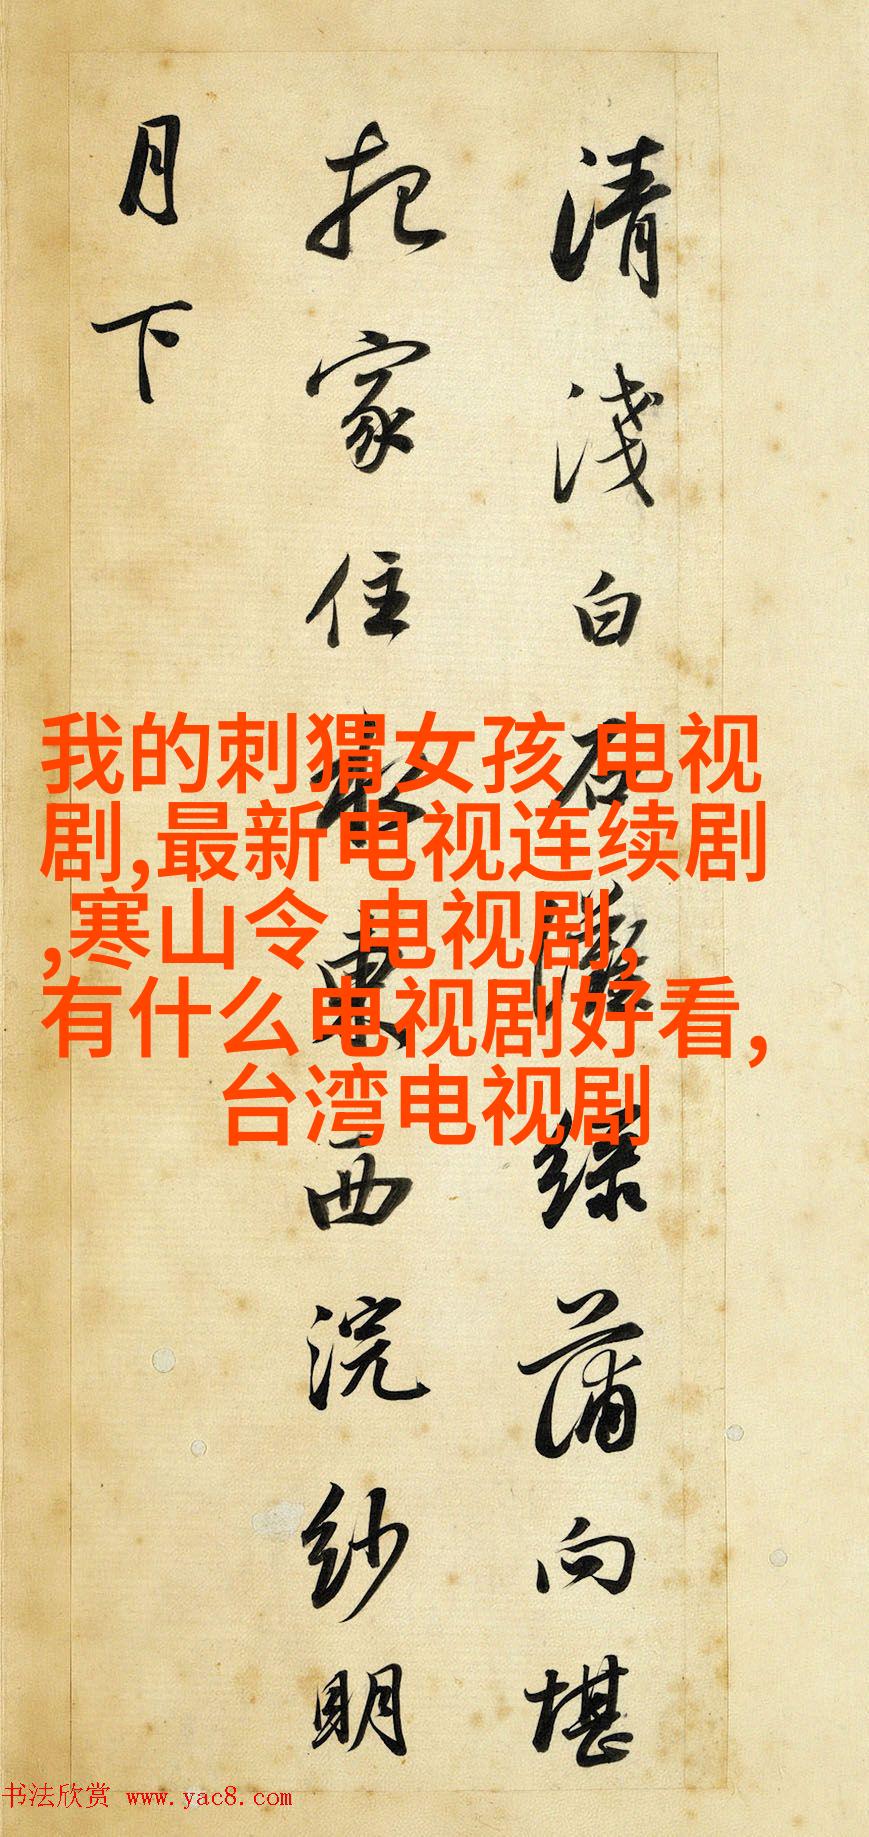 清淺白石灘綠蒲向堪
把家住水東西浣紗明
月下
我的刺猬女孩 电视
剧,最新电视连续剧
,寒山令 电视剧,
有什么电视剧好看,
台湾电视剧
书法欣赏 www.yac8.com